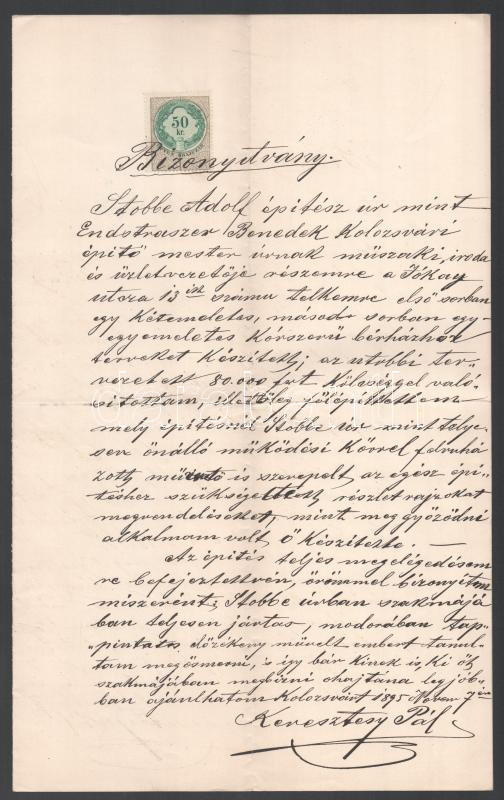 50
kr.
Bizonyitvány.
Stobbe Adolf épitész úr mint
Endstraszer Benedek Kolozsvári
épitö mester úrnak müszaki, iroda
és üzletvezetöje részemre a Jókay
utcza 13 ik számu telkemre elsö sorban
egy Kétemeletes, másod sorban egy-
egyemeletes Kórszerü bérházhoz
terveket Készitett; az utobbi ter-
vezetett 80.000 frt Költséggel való-
sitottam, illetöleg fölépittettem
mely épitésnél Stobbe úr mint telje-
sen önálló müködési Körrel felruhá
zott müvezetö is szerepelt, az egész épi-
téshez szükségeltett részlet rajzokat
megrendeléseket, mint meggyözödni
alkalmam volt ö Készitette. —
Az épités teljes megelégedésem
re befejeztetvén, örömmel bizonyitom
miszerént; Stobbe úrban szakmájá
ban teljesen jártas, modorában tap-
pintatos elözékeny müvelt embert tanul-
tam megösmerni, s igy bár kinek is, Ki öt
szakmájában megbizni ohajtana leg job-
ban ajánlhatom Kolozsvárt 1895 Novem 7 én
Keresztesy Pál